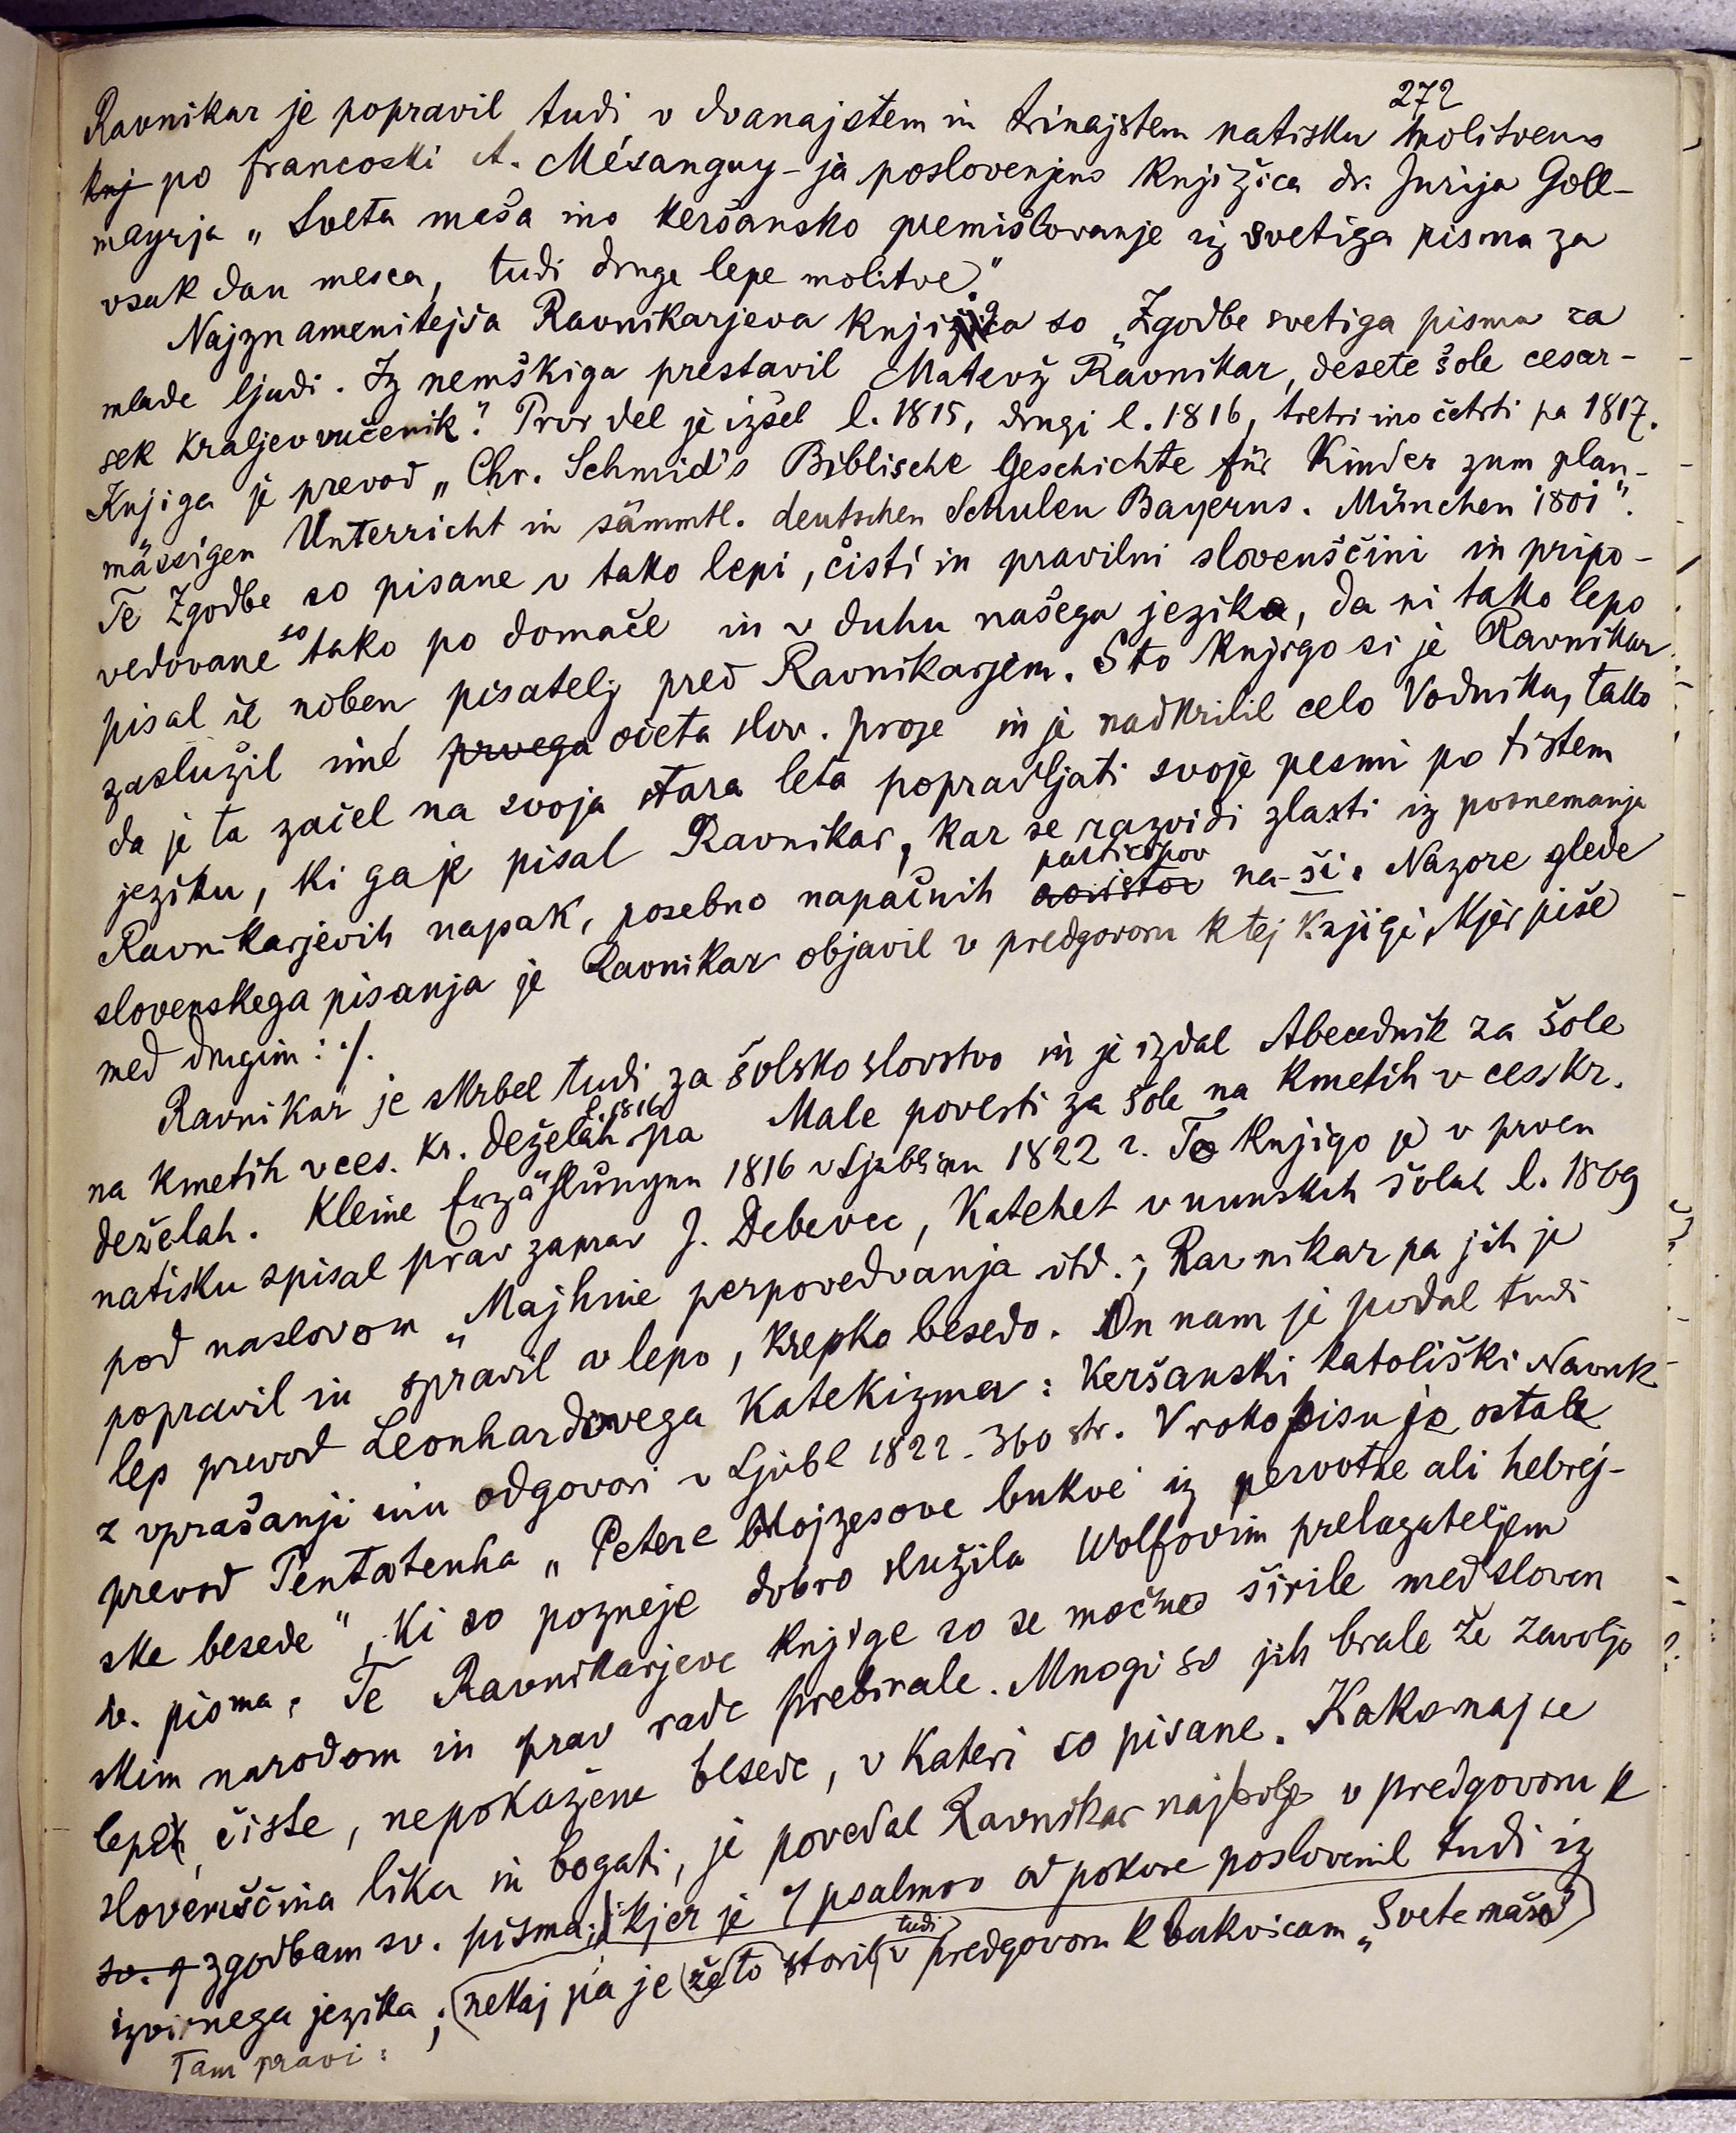 272
Ravnikar je popravil tudi v dvanajstem in trinajstem natisku molitveno
knj po francoski A. Mésanguy-ja poslovenjeno knjižica dr. Jurija Goll-
mayrja „Sveta maša ino keršansko premišlovanje iz svetiga pisma za
vsak dan mesca, tudi druge lepe molitve."
Najznamenitejša Ravnikarjeva knjiga so „Zgodbe svetiga pisma za
mlade ljudi. Iz nemškiga prestavil Matevž Ravnikar, desete šole cesar-
sek kraljev vučenik". Prvi del je izšel l. 1815, drugi l. 1816, tretri ino četrti pa 1817.
Knjiga je prevod „Chr. Schmid's Biblische Geschichte für Kinder zum plan-
mässigen Unterricht in sämmtl. deutschen Schulen Bayerns. München 1801".
Te Zgodbe so pisane v tako lepi, čisti in pravilni slovenščini in pripo-
vedovane so tako po domače in v duhu našega jezika, da ni tako lepo
pisal še noben pisatelj pred Ravnikarjem. S to knjigo si je Ravnikar
zaslužil imé prvega očeta slov. proze in je nadkrilil celo Vodnika, tako
da je ta začel na svoja stara leta popravljati svoje pesmi po tistem
jeziku, ki ga je pisal Ravnikar, kar se razvidi zlasti iz posnemanja
Ravnikarjevih napak, posebno napačnih aoristov participov na -ši. Nazore glede
slovenskega pisanja je Ravnikar objavil v predgovoru k tej knjigi, kjer piše
med drugim: ./.
Ravnikar je skrbel tudi za šolsko slovstvo in je izdal Abecednik za šole
na kmetih v ces. kr. deželah l. 1816 pa Male povesti za šole na kmetih v ces. kr.
deželah. Kleine Erzählungen 1816 v Ljubljani 1822 2. To knjigo je v prven
natisku spisal prav zaprav J. Debevec, katehet v nunskih šolah l. 1809
pod naslovom „Majhine perpovedvanja itd.; Ravnikar pa jih je
popravil in spravil v lepo, krepko besedo. On nam je podal tudi
lep prevod Leonhardovega katekizma: Keršanski katoliški Navuk
z vprašanji inu odgovori v Ljubl 1822. 360 str. V rokopisu je ostal
prevod Pentatenha „Petere Mojzesove bukve iz pervotne ali hebrej-
ske besede", ki so pozneje dobro služila Wolfovim prelagateljem
sv. pisma. Te Ravnikarjeve knjige so se močno širile med sloven
skim narodom in prav rade prebirale. Mnogi so jih brale že zavoljo
lepe, čiste, nepokažene besede, v kateri so pisane. Kako naj se
slovenščina lika in bogati, je povedal Ravnikar najbolje v predgovoru k
sv. z zgodbam sv. pisma; kjer je 7 psalmov od pokore poslovenil tudi iz
izvirnega jezika; nekaj pa je že to storil tudi v predgovoru k bukvicam „Svete maše"
Tam pravi: